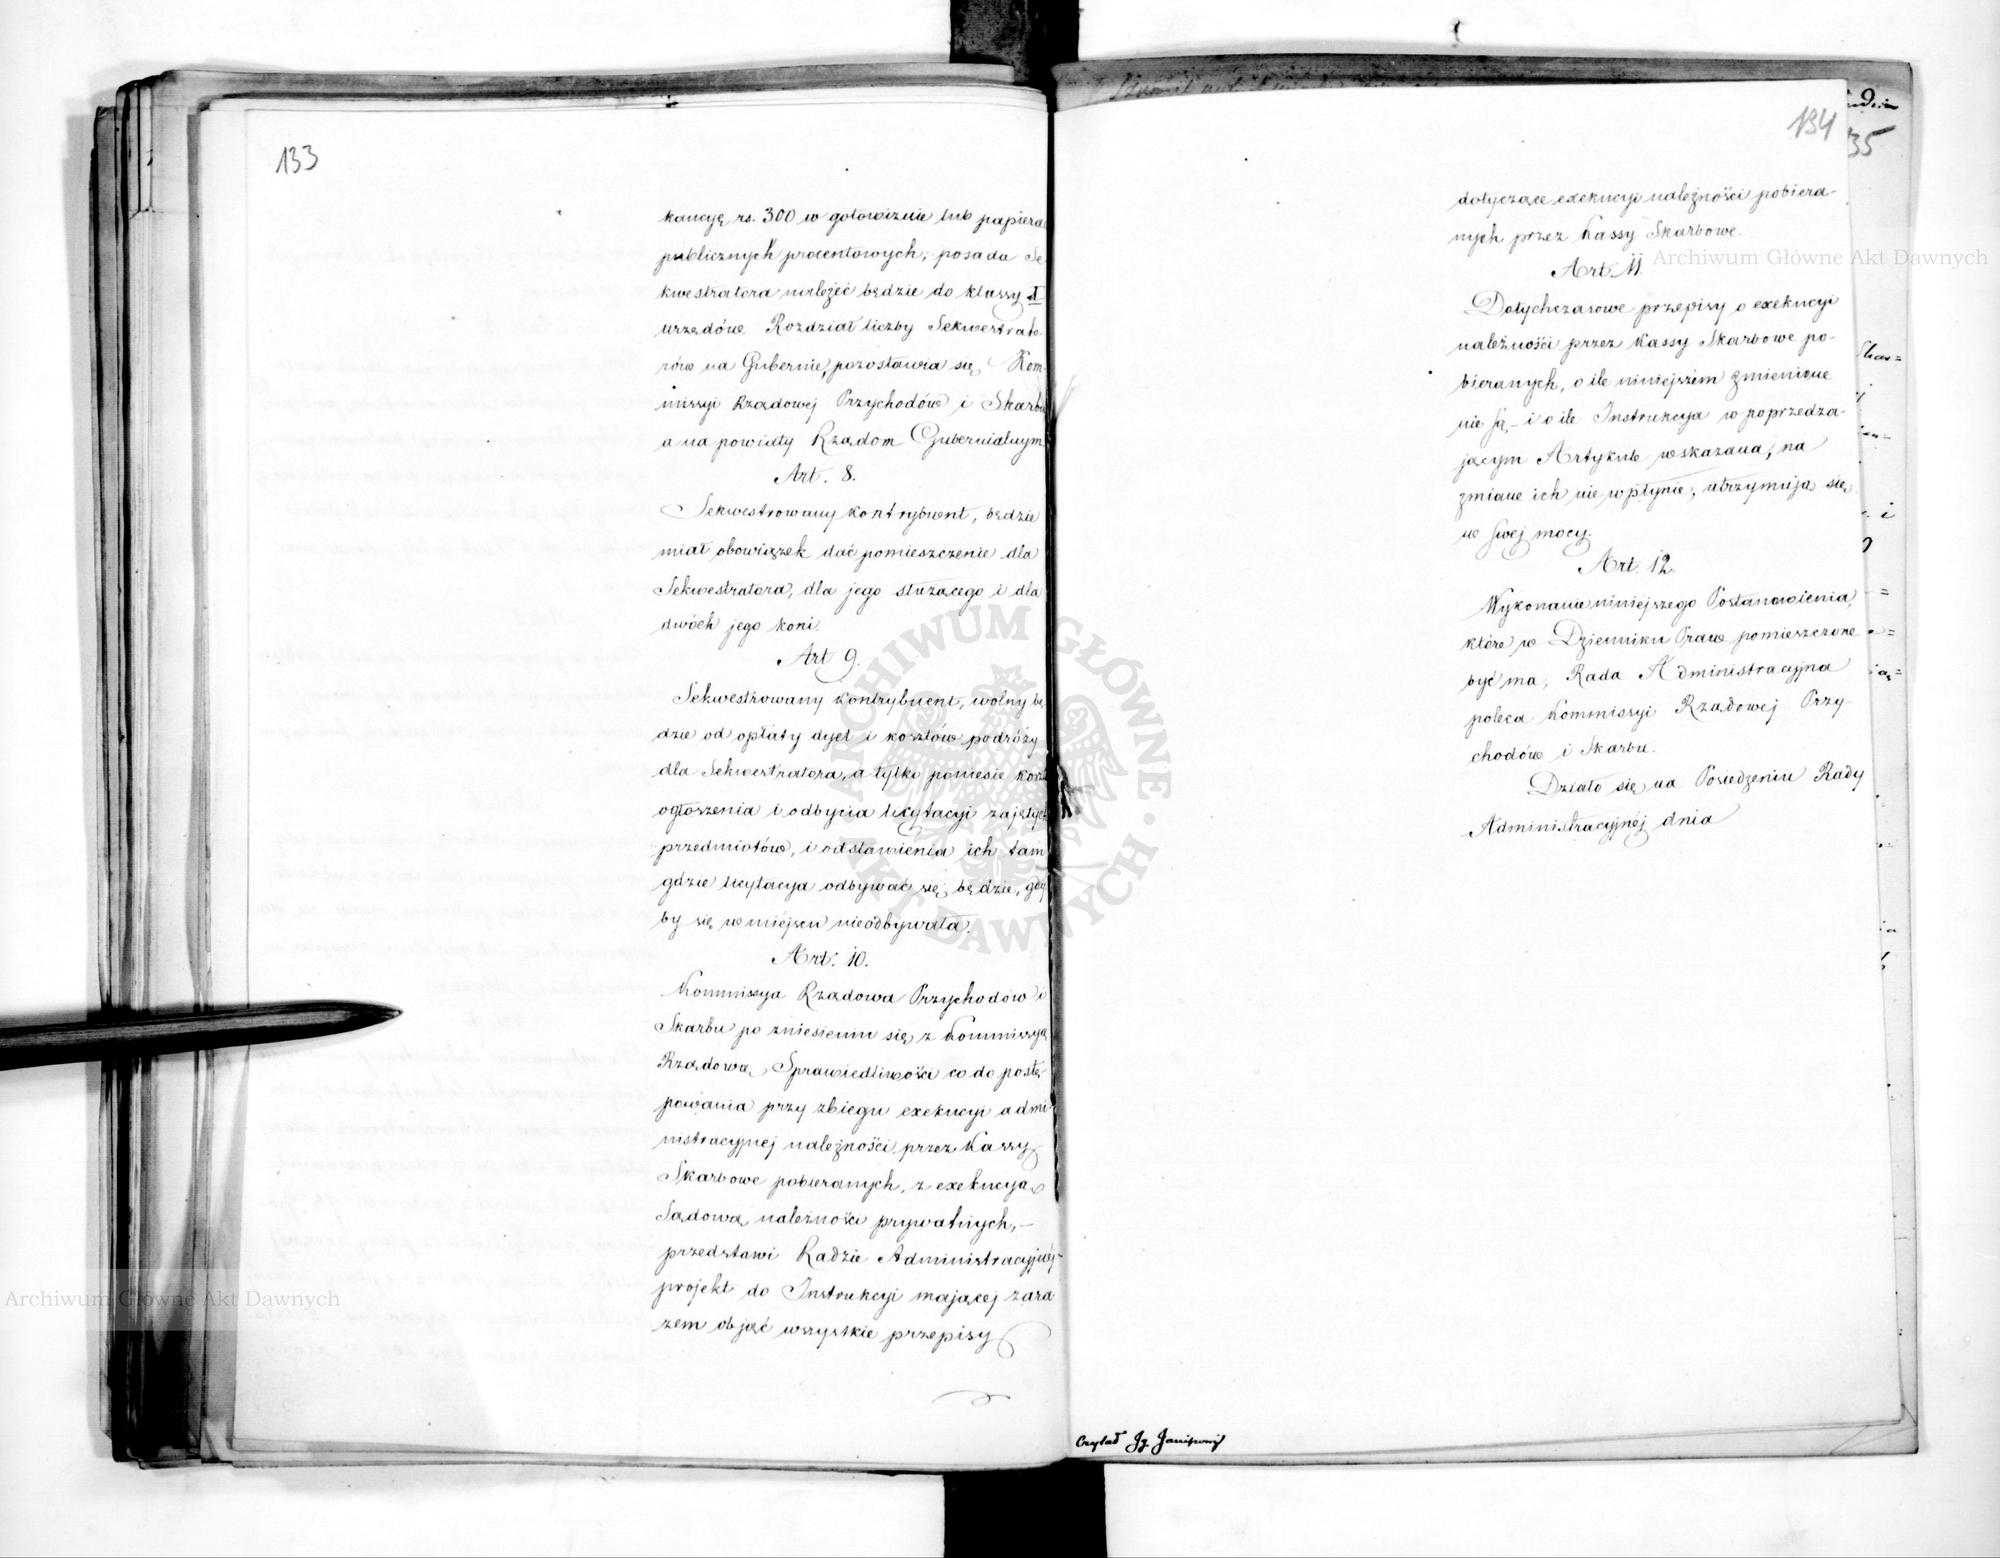 133
kaucyę rs. 300 w gotowiznie lub papiera
publicznych procentowych; posada Se
kwestratora należeć będzie do klassy
urzędów. Rozdział liczby Sekwestrato-
rów na Gubernie, pozostawia się Kom
missyi Rządowej Przychodów i Skarbu
a na powiaty Rządom Gubernialnym
Art. 8.
Sekwestrowany kontrybuent, będzie
miał obowiązek dać pomieszczenie dla
Sekwestratora, dla jego służącego i dla
dwóch jego koni.
Art 9.
Sekwestrowany kontrybuent, wolny bę
dzie od opłaty dyet i kosztów podróży
dla Sekwestratora, a tylko poniesie koszt
ogłoszenia i odbycia licytacyi zajętych
przedmiotów, i odstawienia ich tam
gdzie licytacya odbywać się będzie, gdy
by się w miejscu nieodbywała.
Art. 10.
Kommissya Rządowa Przychodów i
Skarbu po zniesieniu się z Kommissyą
Rządową Sprawiedliwości co do postę-
powania przy zbiegu exekucyi admi-
nistracyjnej należności przez Kassy
Skarbowe pobieranych, z exekucyą
Sądową należności prywatnych,-
przedstawi Radzie Administracyjnéj-
projekt do Instrukcyi mającej zara
zem objąć wszystkie przepisy
134
dotyczące exekucyi należności pobiera-
nych przez Kassy Skarbowe.
Art. 11.
Dotychczasowe przepisy o exekucyi
należności przez Kassy Skarbowe po-
bieranych, o ile niniejszem zmienione
nie są,- i o ile Instrukcya w poprzedza-
jącym Artykule wskazana, na
zmianę ich nie wpłynie, utrzymują się
w swej mocy.
Art. 12.
Wykonanie niniejszego Postanowienia,
które w Dzienniku Praw pomieszczone
być ma, Rada Administracyjna
poleca Kommissyi Rządowej Przy-
chodów i Skarbu.
Działo się na Posiedzeniu Rady
Administracyjnéj dnia
Czytał Ig.
9
35
Archiwum Główne Akt Dawnych
Archiwum Główne Akt Dawnych
ARCHIWUM GŁÓWNE · AKT DAWNYCH ·